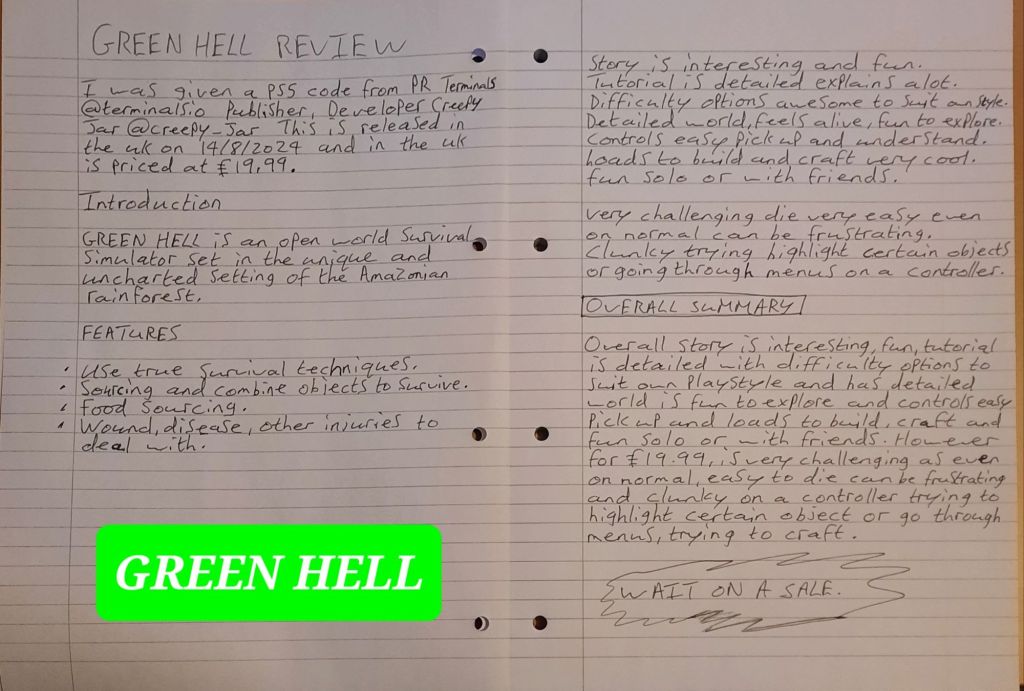 GREEN HELL REVIEW
I was given a PS5 code from PR Terminals
@terminalsio Publisher, Developer Creepy
Jar @creepy_Jar This is released in
the uk on 14/8/2024 and in the uk
is priced at £19.99.
Introduction
GREEN HELL is an open world Survival
Simulator set in the unique and
uncharted setting of the Amazonian
rainforest.
FEATURES
• Use true Survival techniques.
• Sourcing and combine objects to survive.
• food sourcing.
• Wound, disease, other injuries to
deal with.
GREEN HELL
Story is interesting and fun.
Tutorial is detailed explains alot.
Difficulty options awesome to suit own style.
Detailed world, feels alive, fun to explore.
Controls easy pick up and understand.
Loads to build and craft very cool.
fun solo or with friends.
very challenging die very easy even
on normal can be frustrating.
Clunky trying highlight certain objects
or going through menus on a controller.
OVERALL SUMMARY
Overall story is interesting, fun, tutorial
is detailed with difficulty options to
suit own playstyle and has detailed
world is fun to explore and controls easy
pick up and loads to build, craft and
fun solo or with friends. However
for £19.99, is very challenging as even
on normal, easy to die can be frustrating
and clunky on a controller trying to
highlight certain object or go through
menus, trying to craft.
WAIT ON A SALE.